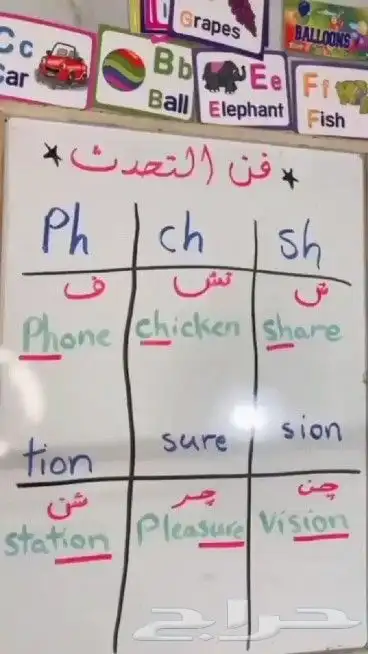 Grapes
BALLOONS
Cc
Car
Bb
Ball
Ee
Elephant
Ff
Fish
★ فن التحدث ★
Ph ch sh
ف تش ش
Phone chicken share
tion sure sion
شن چر چن
station Pleasure Vision
حراج